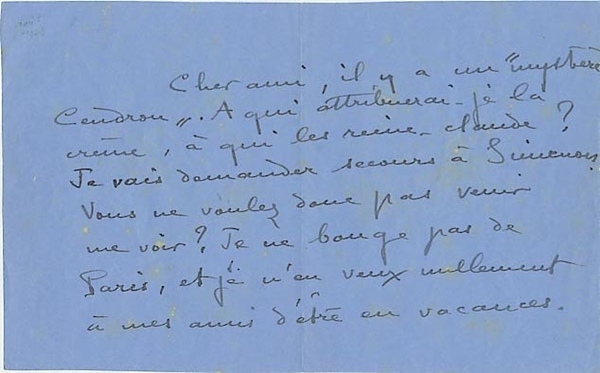 Cher ami, il y a un "mystère
Cendron". A qui attribuerai-je la
crème, à qui les reine-claude ?
Je vais demander secours à Simenon.
Vous ne voulez donc pas venir
me voir ? Je ne bouge pas de
Paris, et j'e n'en veux nullement
à mes amis d'être en vacances.